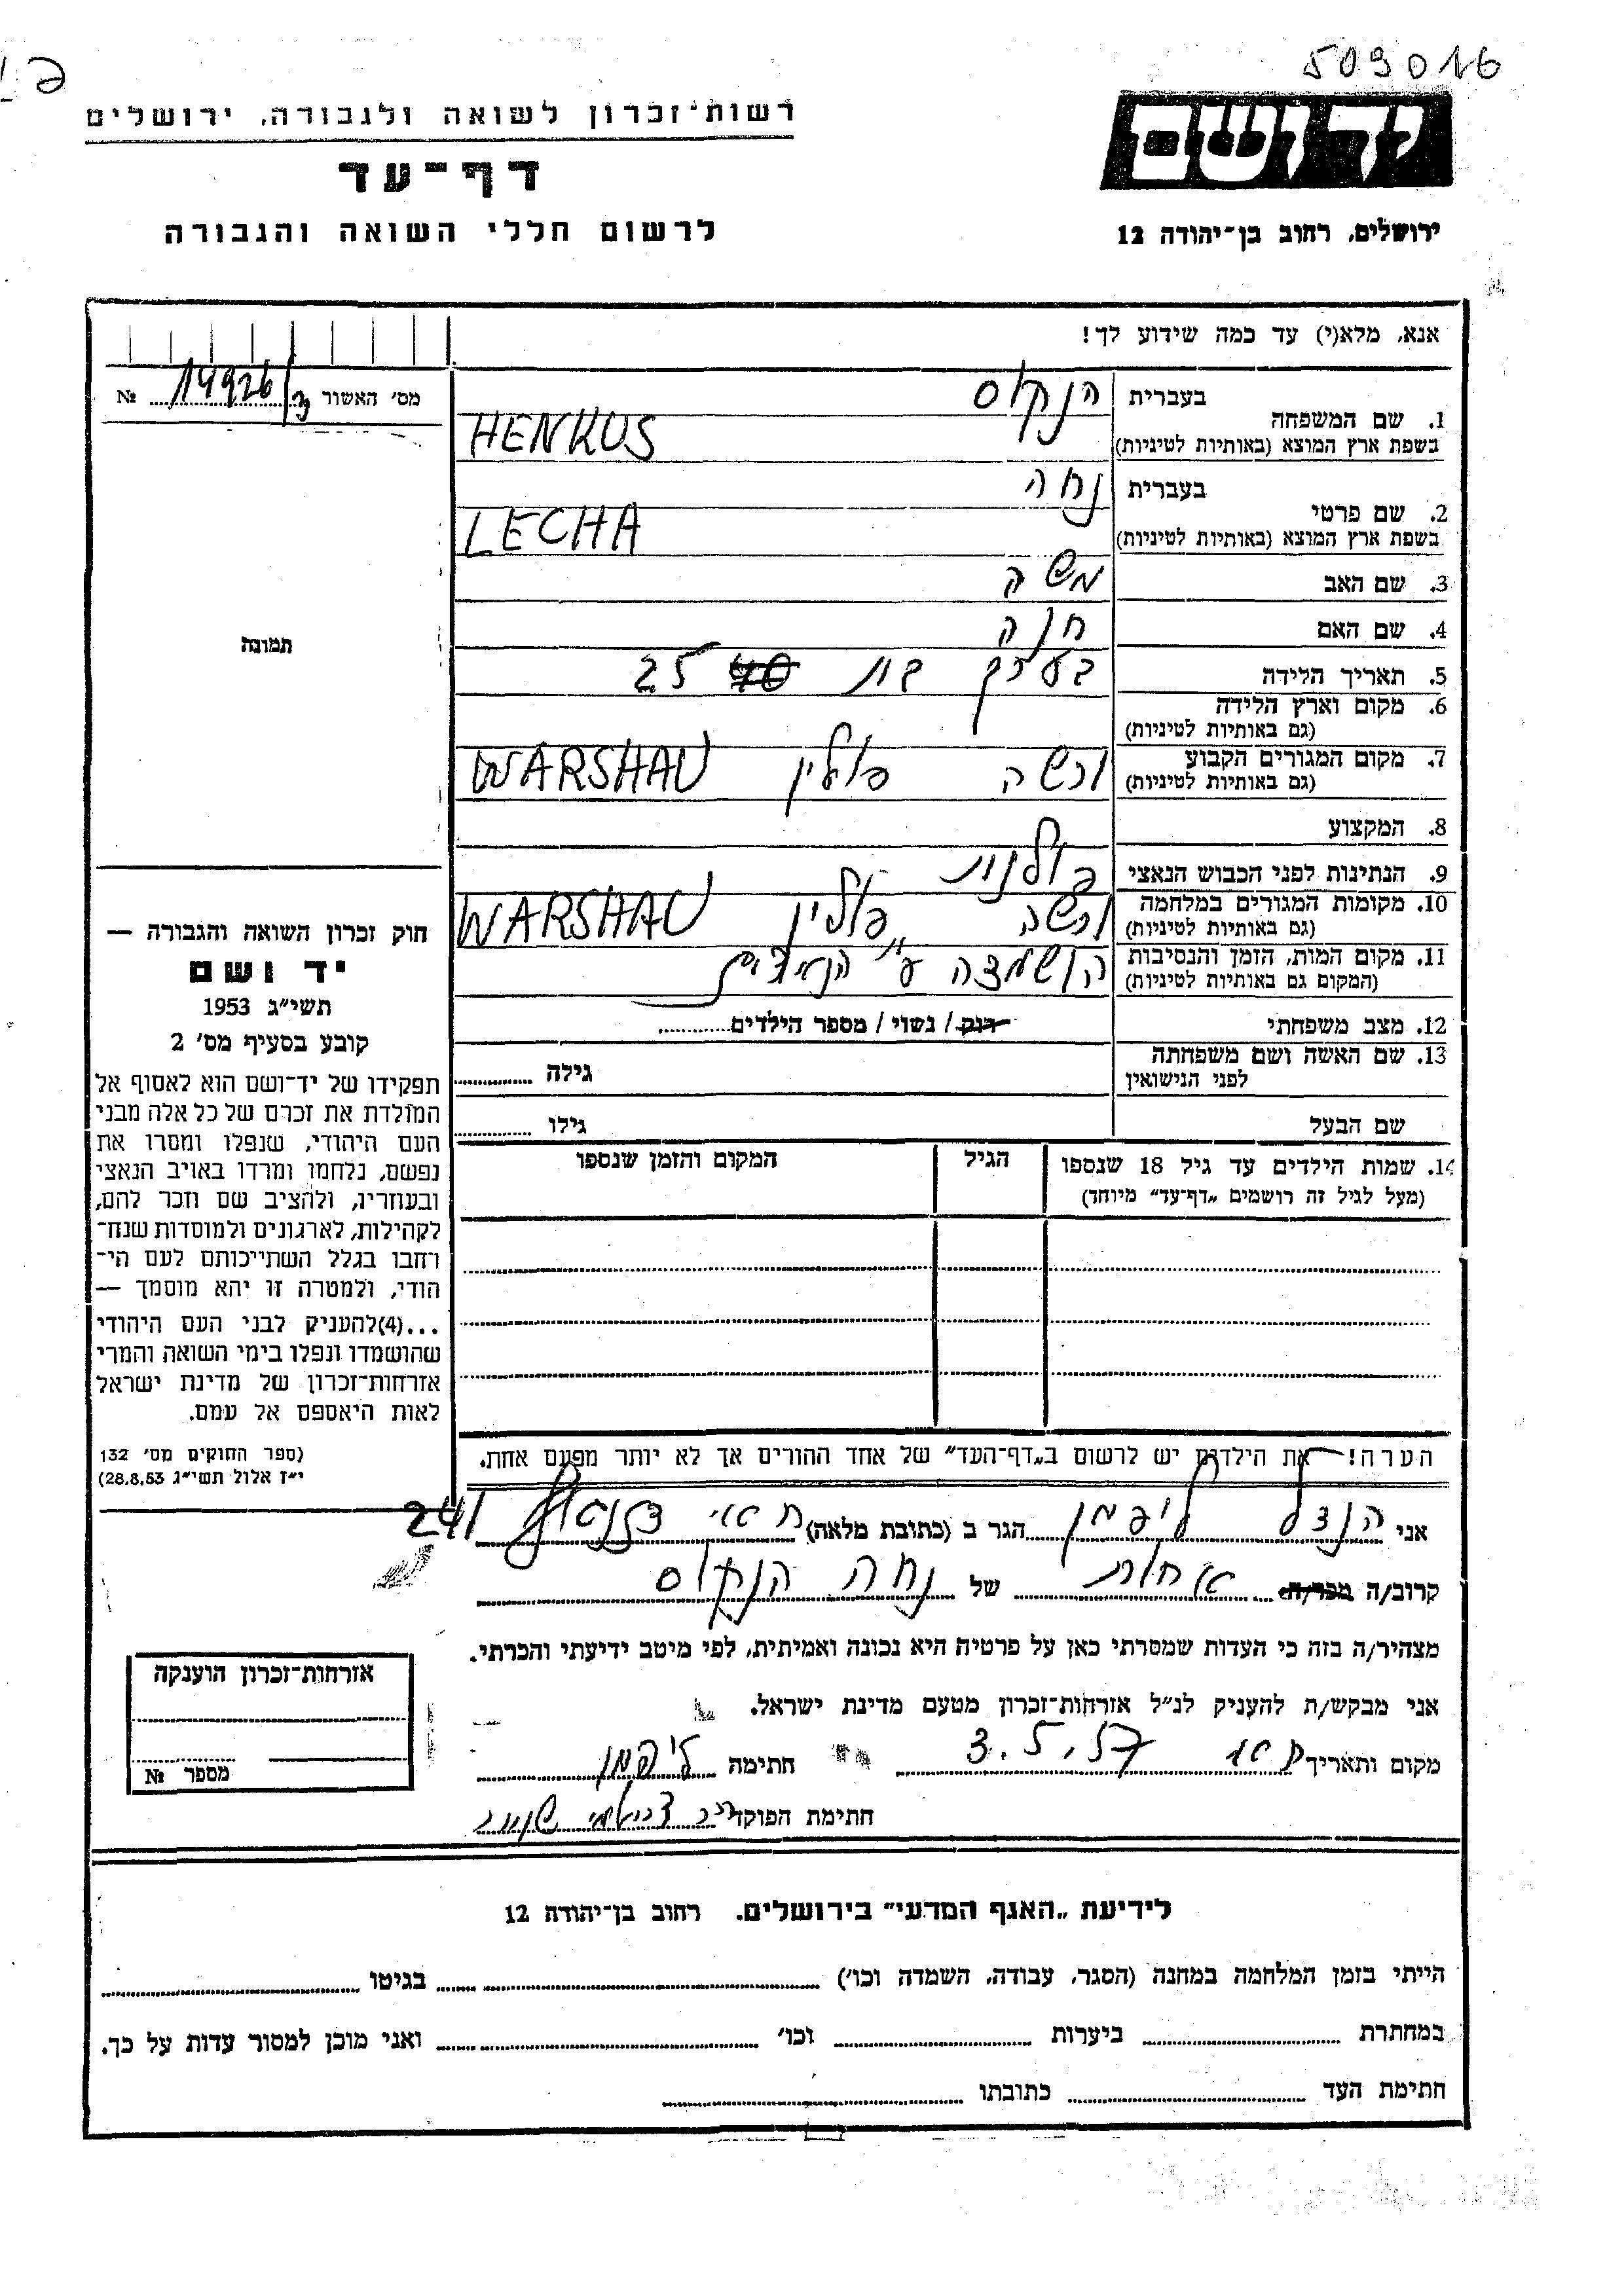 509016
רשות־זכרון לשואה ולגבורה, ירושלים
דף־עד
לרשום חללי השואה והגבורה
יד ושם
ירושלים, רחוב בן־יהודה 12
אנא, מלא(י) עד כמה שידוע לך!
מס׳ האשור 14926/3 №
1. שם המשפחה בעברית הנקוס
בשפת ארץ המוצא (באותיות לטיניות) HENKUS
2. שם פרטי בעברית נחה
בשפת ארץ המוצא (באותיות לטיניות) LECHA
3. שם האב משה
4. שם האם חנה
5. תאריך הלידה בערך בת 40 25
6. מקום וארץ הלידה
(גם באותיות לטיניות)
7. מקום המגורים הקבוע ורשה פולין WARSHAU
(גם באותיות לטיניות)
8. המקצוע
9. הנתינות לפני הכבוש הנאצי פולנית
10. מקומות המגורים במלחמה ורשה פולין WARSHAU
(גם באותיות לטיניות)
11. מקום המות, הזמן והנסיבות הושמדה ע״י הנאצים
(המקום גם באותיות לטיניות)
12. מצב משפחתי רוק / נשוי / מספר הילדים
13. שם האשה ושם משפחתה
לפני הנישואין גילה
שם הבעל גילו
14. שמות הילדים עד גיל 18 שנספו הגיל המקום והזמן שנספו
(מעל לגיל זה רושמים „דף־עד״ מיוחד)
הערה! את הילדים יש לרשום ב„דף־העד״ של אחד ההורים אך לא יותר מפעם אחת.
תמונה
חוק זכרון השואה והגבורה —
יד ושם
תשי״ג 1953
קובע בסעיף מס׳ 2
תפקידו של יד־ושם הוא לאסוף אל
המולדת את זכרם של כל אלה מבני
העם היהודי, שנפלו ומסרו את
נפשם, נלחמו ומרדו באויב הנאצי
ובעוזריו, ולהציב שם וזכר להם,
לקהילות, לארגונים ולמוסדות שנח־
רחבו בגלל השתייכותם לעם הי־
הודי, ולמטרה זו יהא מוסמך —
...(4)להעניק לבני העם היהודי
שהושמדו ונפלו בימי השואה והמרי
אזרחות־זכרון של מדינת ישראל
לאות היאספם אל עמם.
(ספר החוקים מס׳ 132
י״ז אלול תשי״ג 28.8.53)
אני הנדל ליפמן הגר ב (כתובת מלאה) 241
קרוב/ה מכר/ה אחות של נחה הנקוס
מצהיר/ה בזה כי העדות שמסרתי כאן על פרטיה היא נכונה ואמיתית, לפי מיטב ידיעתי והכרתי.
אני מבקש/ת להעניק לנ״ל אזרחות־זכרון מטעם מדינת ישראל.
מקום ותאריך 3.5.57 חתימה ליפמן
חתימת הפוקד
אזרחות־זכרון הוענקה
מספר №
לידיעת „האגף המדעי״ בירושלים, רחוב בן־יהודה 12
הייתי בזמן המלחמה במחנה (הסגר, עבודה, השמדה וכו׳) בגיטו
במחתרת ביערות וכו׳ ואני מוכן למסור עדות על כך.
חתימת העד כתובתו